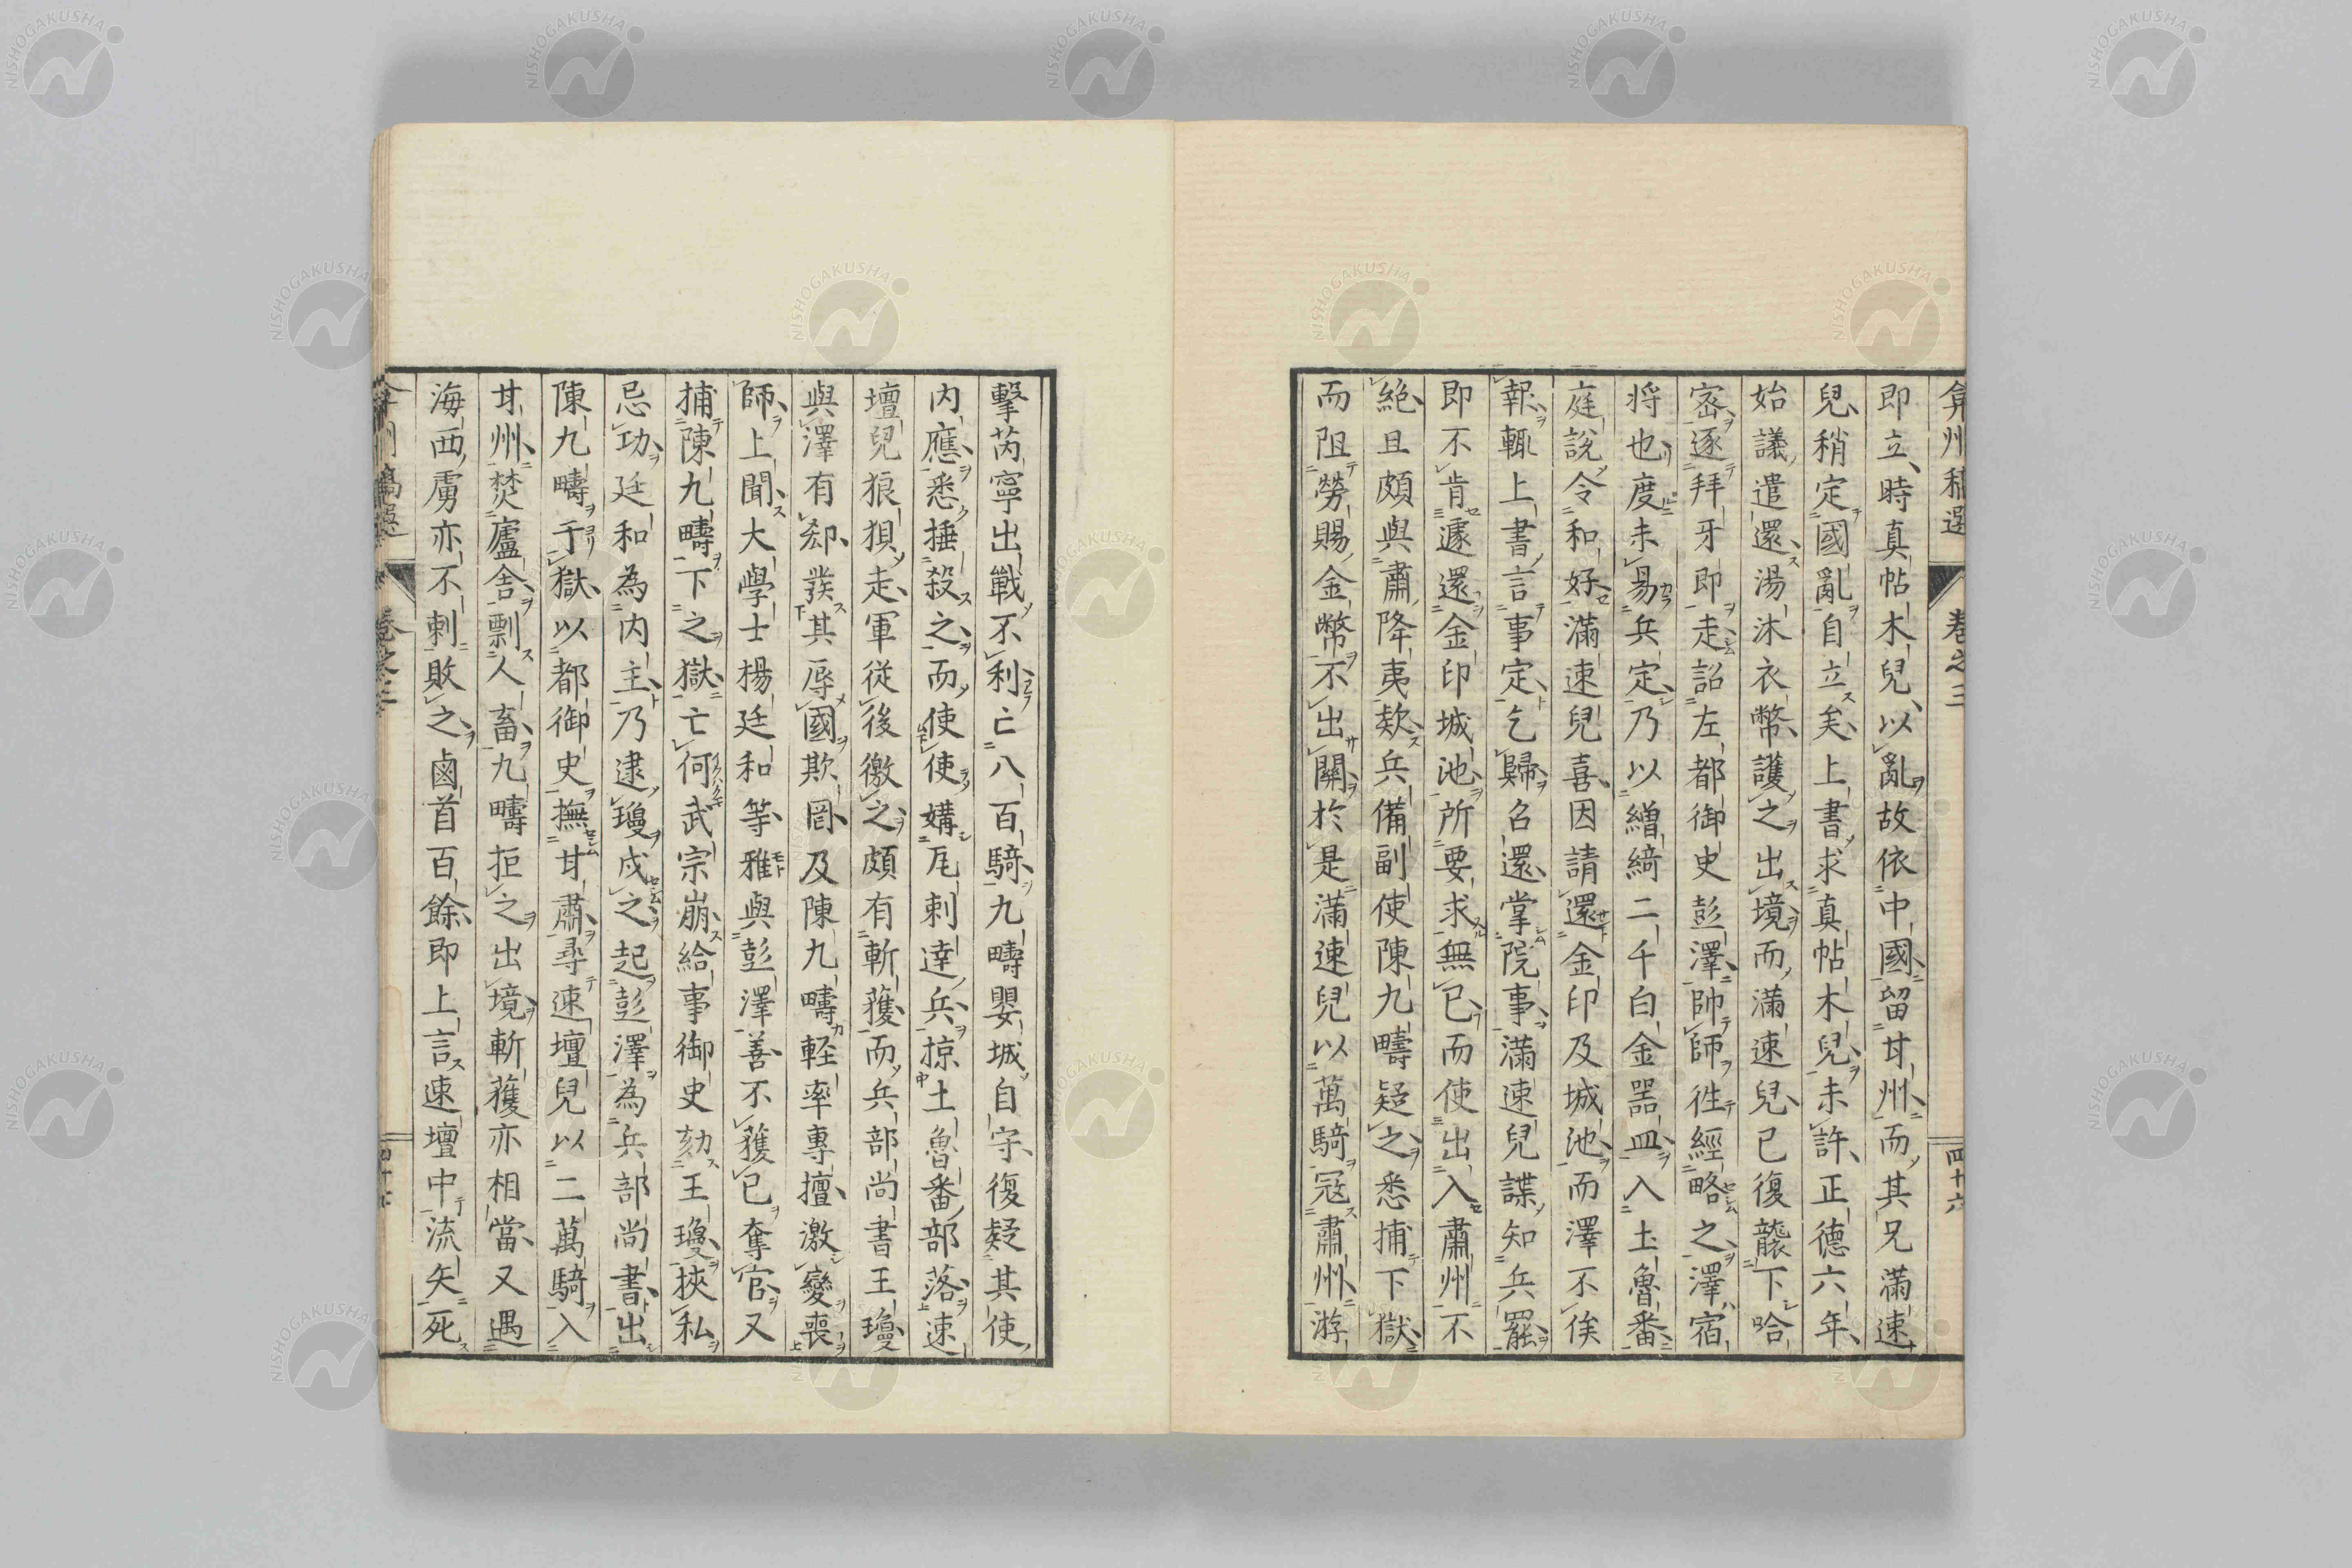 弇州稿選 卷之三 四十六
即立時真帖木兒以亂故依中國留甘州而其兄滿速
兒稍定國亂自立矣上書求真帖木兒未許正德六年
始議遣還湯沐衣幣護之出境而滿速兒已復襲下哈
密逐拜牙即走詔左都御史彭澤帥師徃經略之澤宿
將也度未易兵定乃以繒綺二千白金噐皿入土魯番
庭說令和好滿速兒喜因請還金印及城池而澤不俟
報輒上書言事定乞歸召還掌院事滿速兒諜知兵罷
即不肯遽還金印城池所要求無已而使出入肅州不
絕且頗與肅降夷欵兵備副使陳九疇疑之悉捕下獄
而阻勞賜金幣不出關於是滿速兒以萬騎冦肅州游
擊芮寧出戰不利亡八百騎九疇嬰城自守復疑其使
内應悉捶殺之而使使媾瓦剌達兵掠土魯番部落速
壇兒狼狽走軍從後徼之頗有斬獲而兵部尚書王瓊
與澤有郄發其辱國欺罔及陳九疇輕率專擅激變喪
師上聞大學士楊廷和等雅與彭澤善不獲已奪官又
捕陳九疇下之獄亡何武宗崩給事御史劾王瓊挾私
忌功廷和為内主乃逮瓊戍之起彭澤為兵部尚書出
陳九疇于獄以都御史撫甘肅尋速壇兒以二萬騎入
甘州焚廬舎剽人畜九疇拒之出境斬獲亦相當又遇
海西虜亦不剌敗之鹵首百餘即上言速壇中流矢死